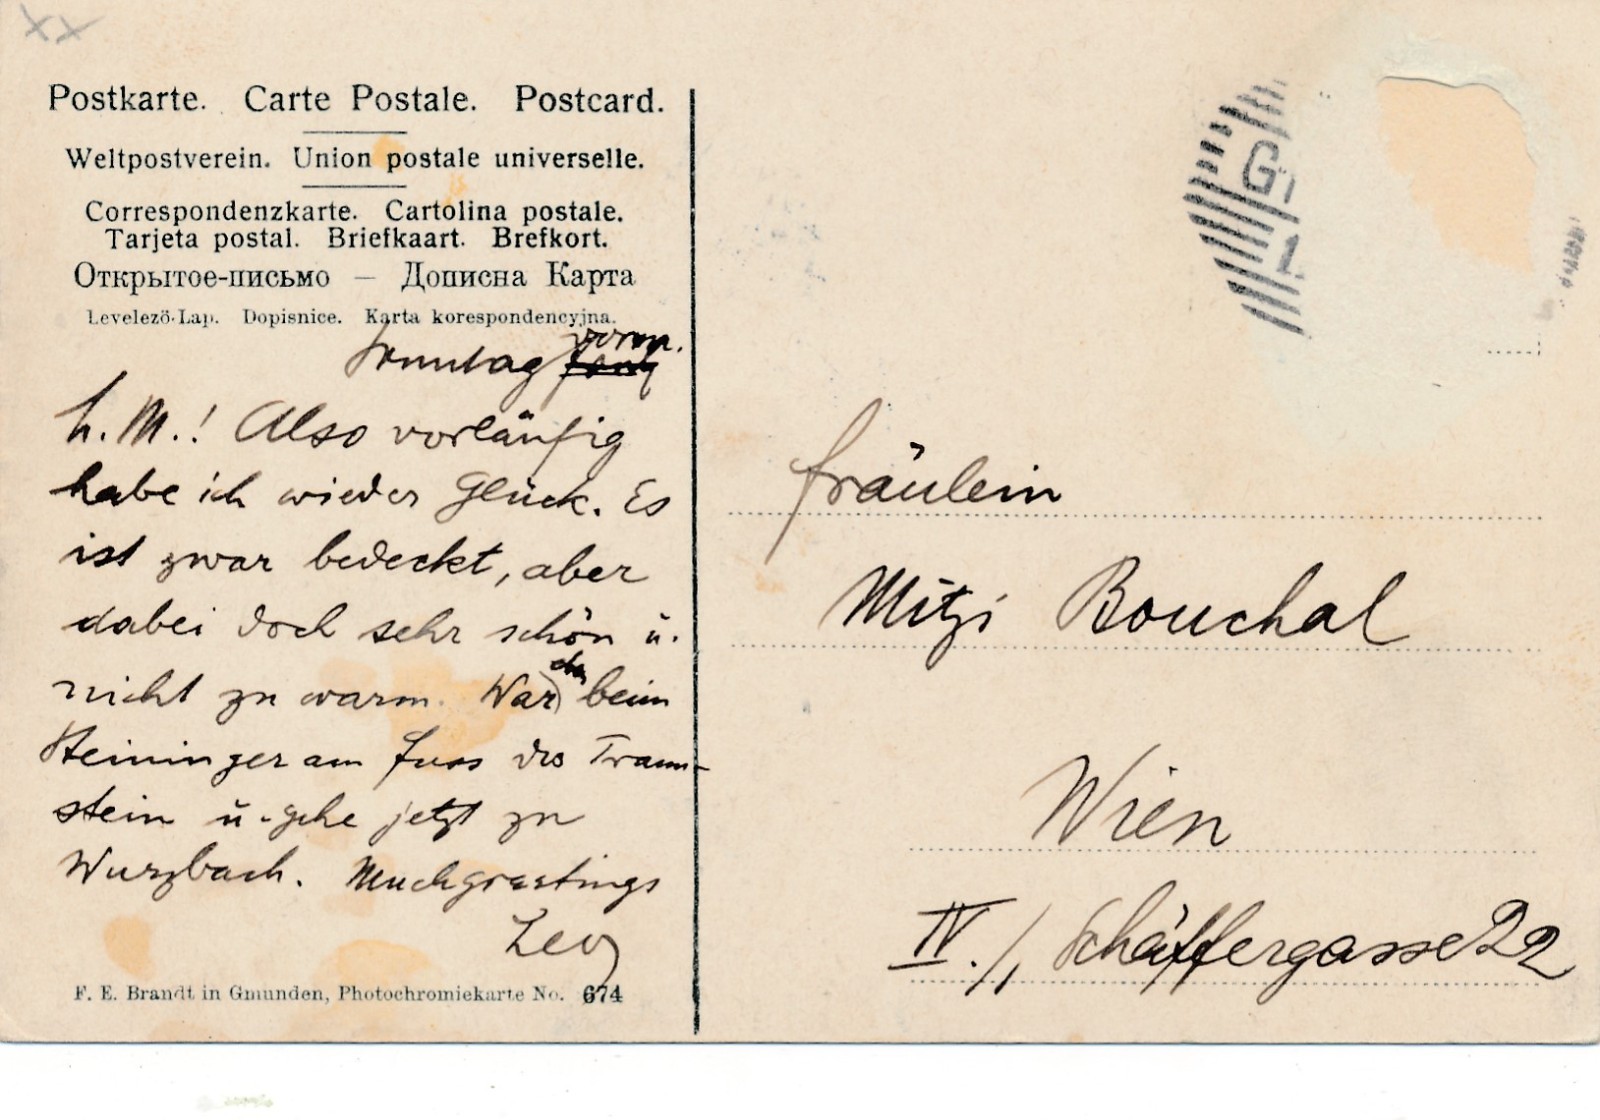 Postkarte. Carte Postale. Postcard.
Weltpostverein. Union postale universelle.
Correspondenzkarte. Cartolina postale.
Tarjeta postal. Briefkaart. Brefkort.
Открытое-письмо — Дописна Карта
Levelező-Lap. Dopisnice. Karta korespondencyjna.
Sonntag vorm.
L. M.! Also vorläufig
habe ich wieder Glück. Es
ist zwar bedeckt, aber
dabei doch sehr schön u.
nicht zu warm. War beim
Steininger am Fuss des Traun-
stein u. gehe jetzt zu
Wurzbach. Muchgreetings
F. E. Brandt in Gmunden, Photochromiekarte No. 674
G
1
Fräulein
Mitzi Bouchal
Wien
IV./1, Schäffergasse 22